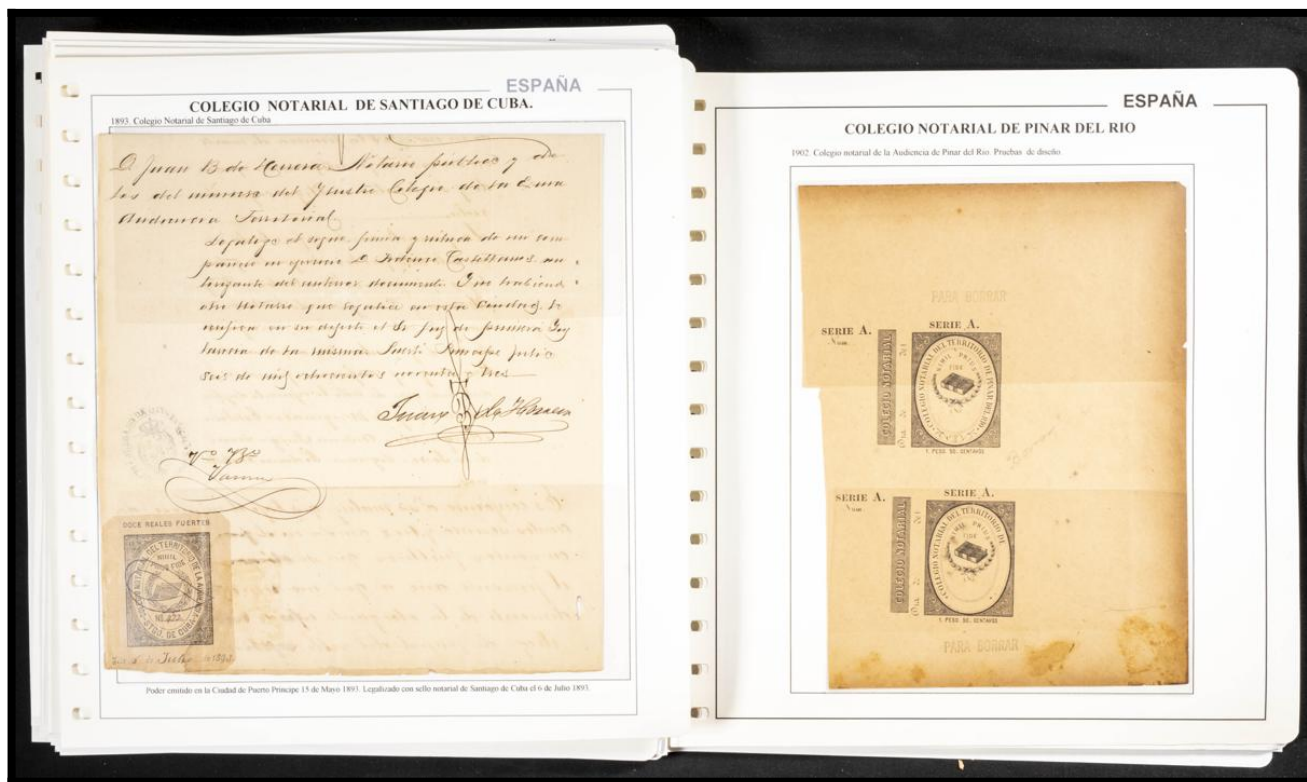 ESPAÑA
COLEGIO NOTARIAL DE SANTIAGO DE CUBA.
1893. Colegio Notarial de Santiago de Cuba
D. Juan B de Herrera Notario público y de
los del número del Ylustre Colegio de la Exma
Audiencia Territorial
Legalizo el signo firma y rúbrica de mi com
pañero
D. Castellanos au
torizante del anterior documento Y no habiendo
otro Notario que legalice en esta Ciudad, lo
en su defecto el Sr Juez de primera Yns
tancia de la misma Puerto Principe Julio
seis de mil ochocientos noventa y tres
Juan B de Herrera
Vto Bno
DOCE REALES FUERTES
DEL TERRITORIO DE LA
NIHIL
PRIUS FIDE
STGO. DE CUBA
de Julio de 1893
Poder emitido en la Ciudad de Puerto Principe 15 de Mayo 1893. Legalizado con sello notarial de Santiago de Cuba el 6 de Julio 1893.
ESPAÑA
COLEGIO NOTARIAL DE PINAR DEL RIO
1902. Colegio notarial de la Audiencia de Pinar del Rio. Pruebas de diseño.
PARA BORRAR
SERIE A.
SERIE A.
Num.
COLEGIO NOTARIAL
COLEGIO NOTARIAL DEL TERRITORIO DE PINAR DEL RIO
NIHIL PRIUS
FIDE
1. PESO. 50. CENTAVOS
SERIE A.
SERIE A.
Num.
COLEGIO NOTARIAL
COLEGIO NOTARIAL DEL TERRITORIO DE
NIHIL PRIUS
FIDE
1. PESO. 50. CENTAVOS
PARA BORRAR